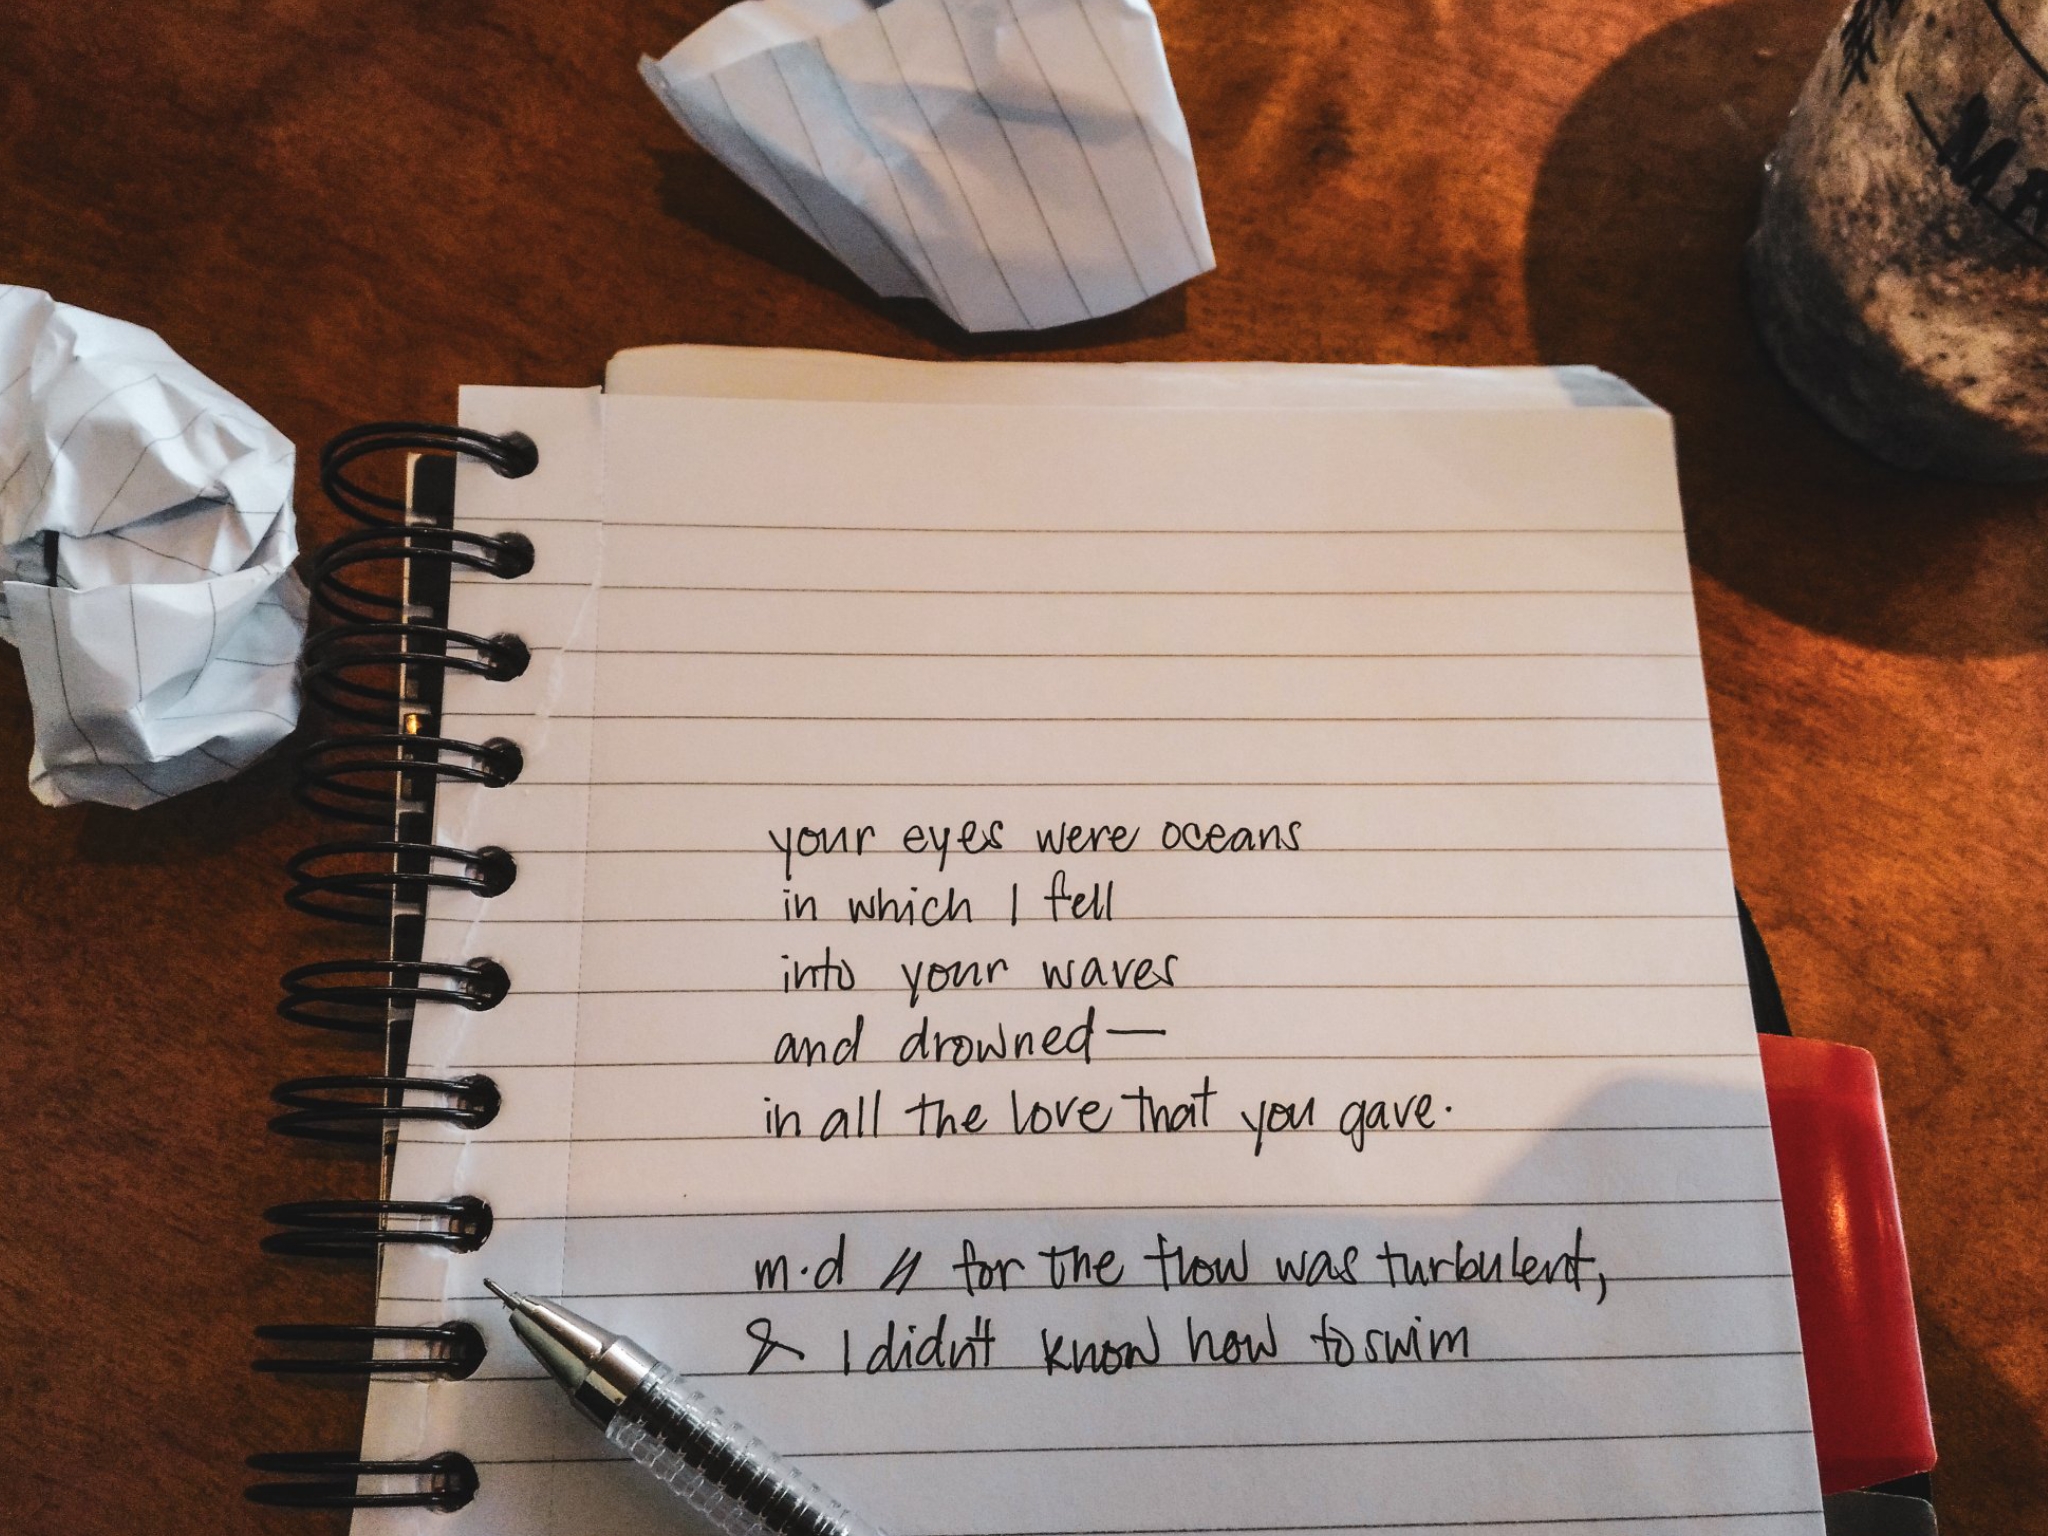 your eyes were oceans
in which I fell
into your waves
and drowned—
in all the love that you gave.
m.d // for the flow was turbulent,
& I didn't know how to swim